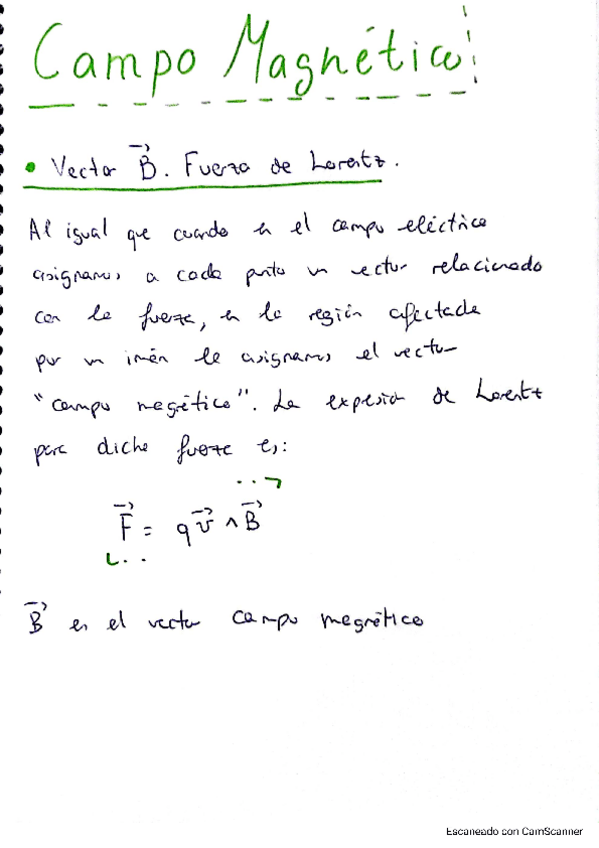 Campo Magnético
• Vector B⃗. Fuerza de Lorentz.
Al igual que cuando en el campo eléctrico
asignamos a cada punto un vector relacionado
con la fuerza, en la región afectada
por un imán le asignamos el vector
"campo magnético". La expresión de Lorentz
para dicha fuerza es:
F⃗ = q v⃗ ∧ B⃗
B⃗ es el vector campo magnético
Escaneado con CamScanner